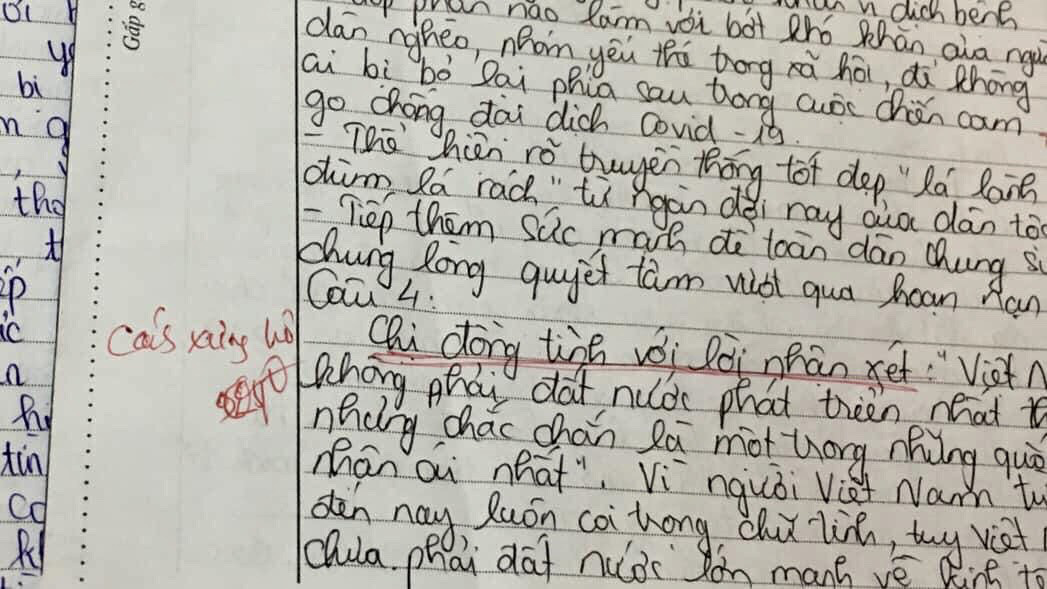 Gấp g
dân nghèo, nhóm yếu thế trong xã hội, để không
ai bị bỏ lại phía sau trong cuộc chiến cam
go chống đại dịch Covid-19.
- Thể hiện rõ truyền thống tốt đẹp "lá lành
đùm lá rách" từ ngàn đời nay của dân tộc
- Tiếp thêm sức mạnh để toàn dân chung sứ
chung lòng quyết tâm vượt qua hoạn nạn
Câu 4:
Cách xưng hô
Chị đồng tình với lời nhận xét: "Việt N
không phải đất nước phát triển nhất th
nhưng chắc chắn là một trong những quố
nhân ái nhất". Vì người Việt Nam từ
đến nay luôn coi trọng chữ tình, tuy Việt
chưa phải đất nước lớn mạnh về kinh tế